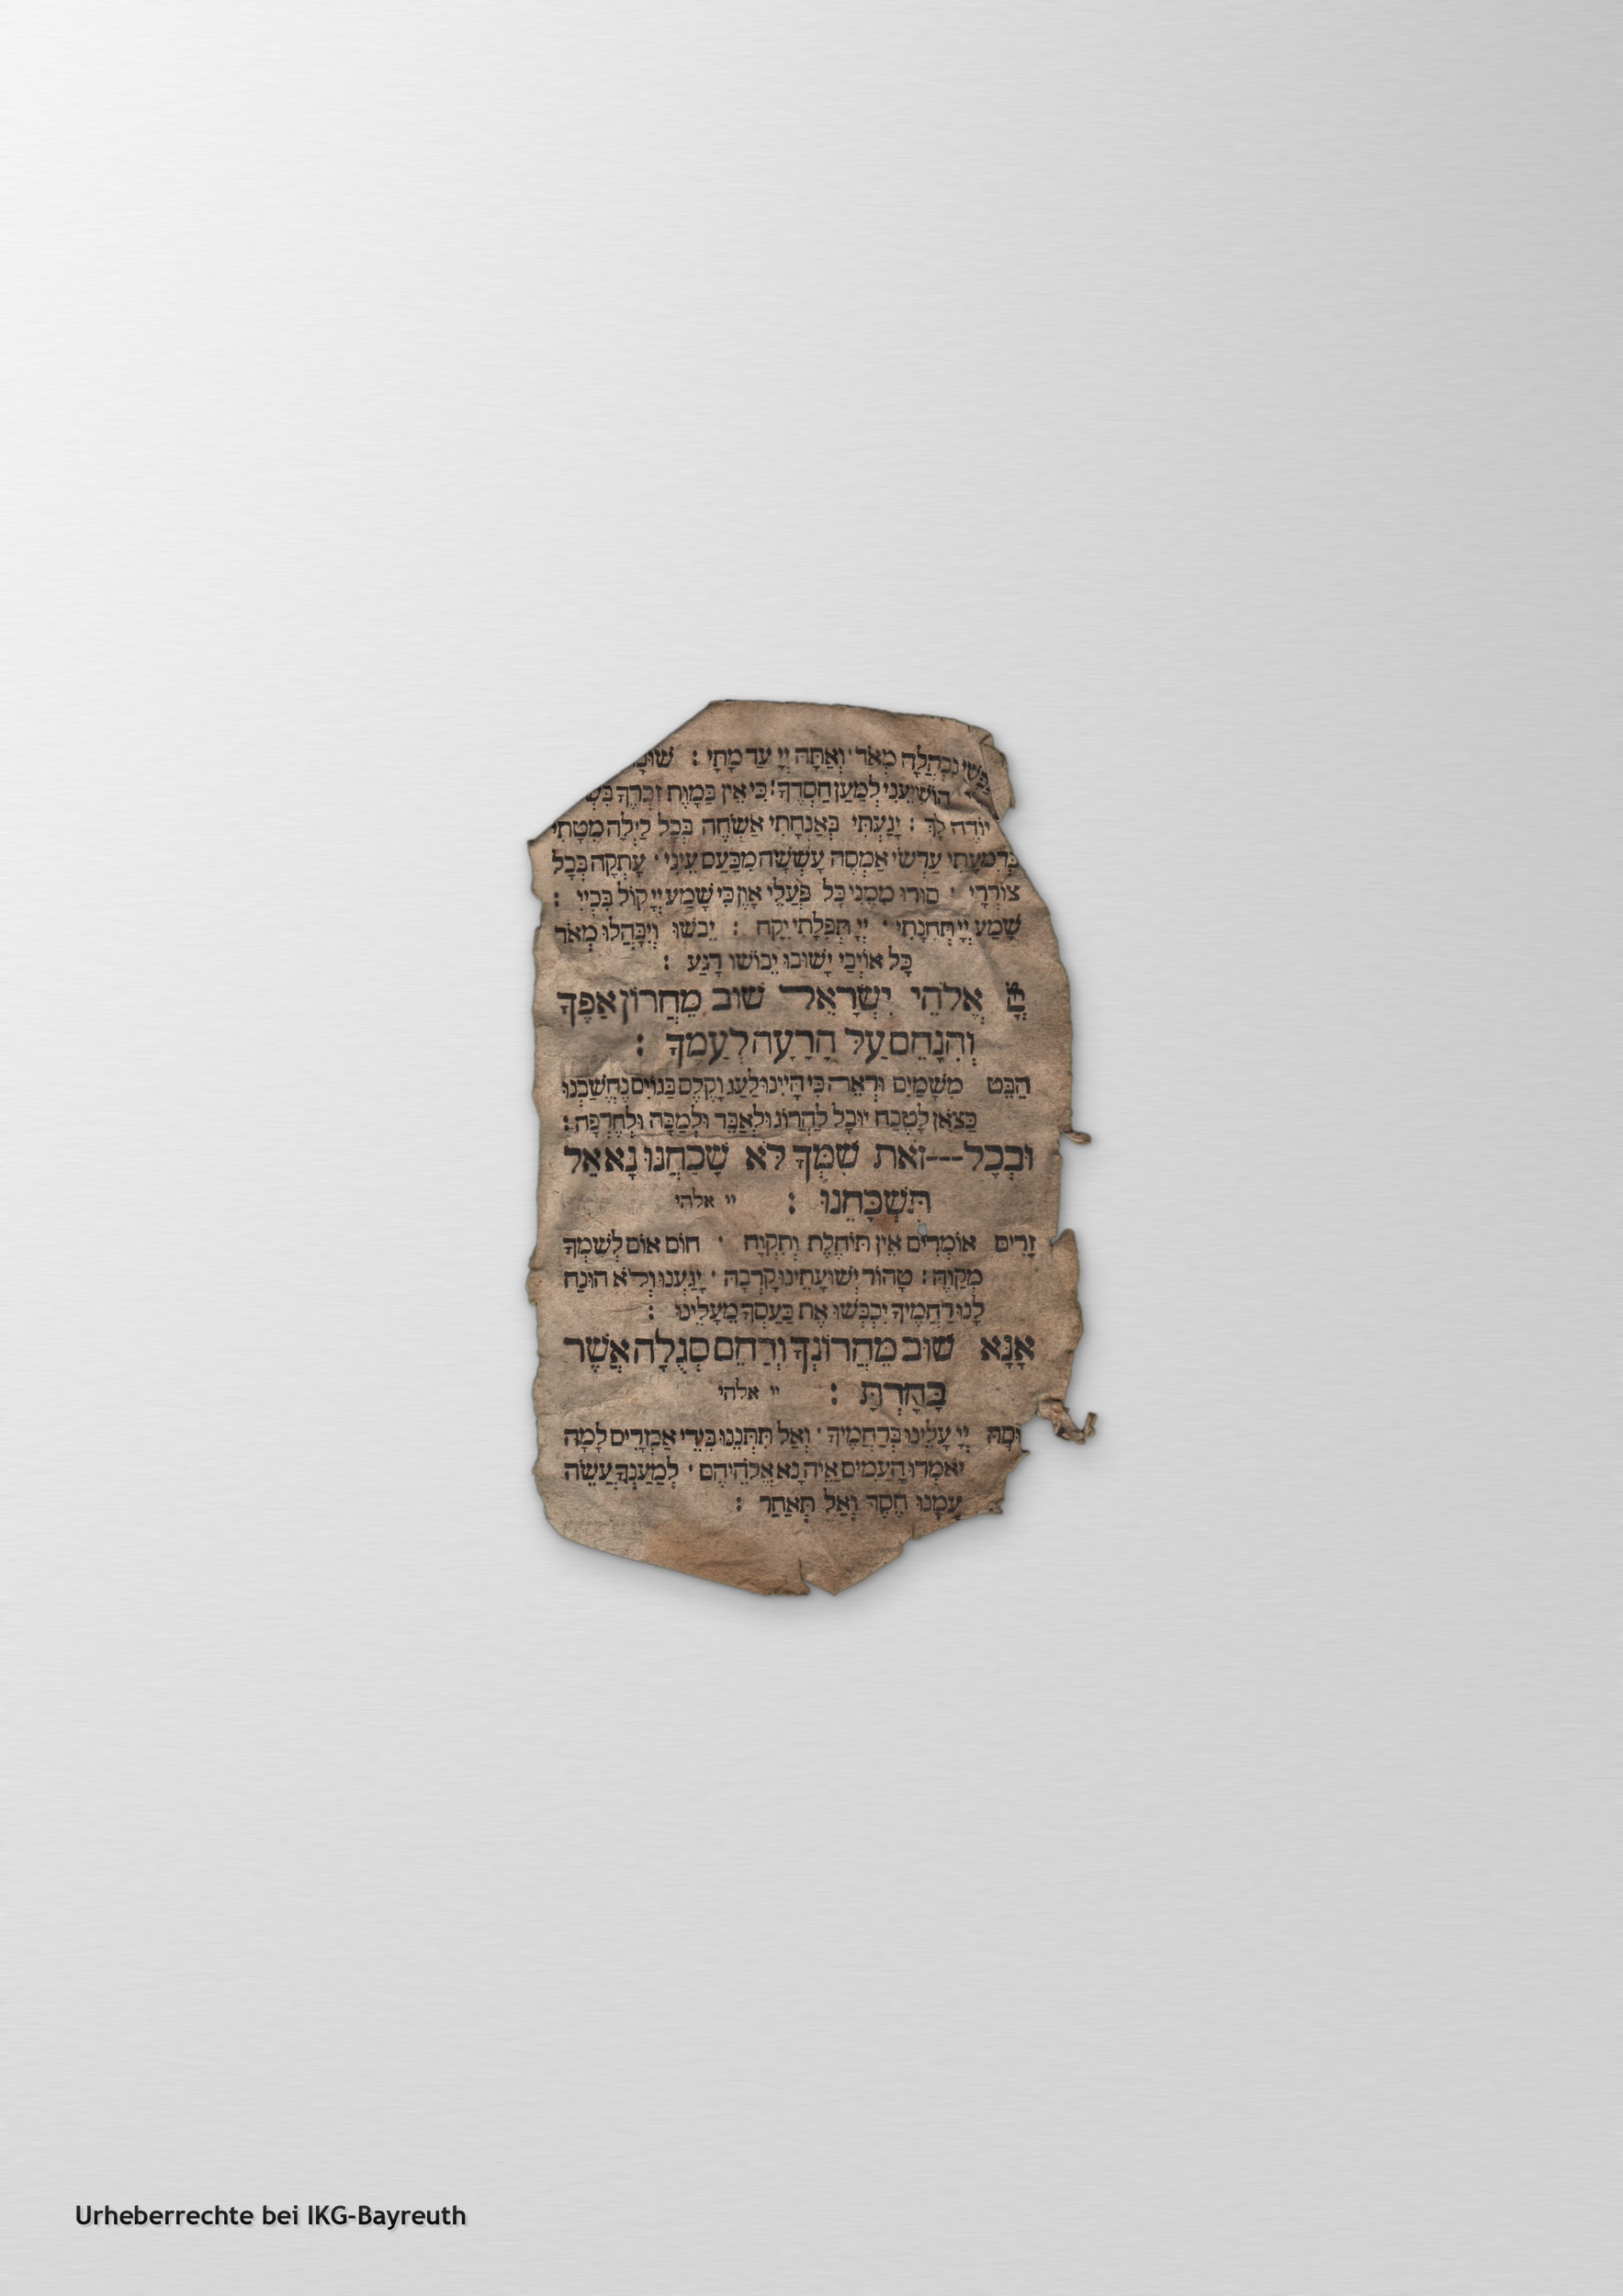 נבהלה מְאֹד· וְאַתָּה יְיָ עַד מָתָי :
הוֹשִׁיעֵנִי לְמַעַן חַסְדֶּךָ: כִּי אֵין בַּמָּוֶת זִכְרֶךָ
יוֹדֶה לָּךְ : יָגַעְתִּי בְּאַנְחָתִי אַשְׂחֶה בְּכָל לַיְלָה מִטָּתִי
בְּדִמְעָתִי עַרְשִׂי אַמְסֶה עָשְׁשָׁה מִכַּעַס עֵינִי· עָתְקָה בְּכָל
צוֹרְרָי · סוּרוּ מִמֶּנִּי כָּל פֹּעֲלֵי אָוֶן כִּי שָׁמַע יְיָ קוֹל בִּכְיִי :
שָׁמַע יְיָ תְּחִנָּתִי · יְיָ תְּפִלָּתִי יִקָּח : יֵבֹשׁוּ וְיִבָּהֲלוּ מְאֹד
כָּל אוֹיְבַי יָשׁוּבוּ יֵבוֹשׁוּ רָגַע :
אֱלֹהֵי יִשְׂרָאֵל שׁוּב מֵחֲרוֹן אַפֶּךָ
וְהִנָּחֵם עַל הָרָעָה לְעַמֶּךָ :
הַבֵּט מִשָּׁמַיִם וּרְאֵה כִּי הָיִינוּ לַעַג וָקֶלֶס בַּגּוֹיִם נֶחֱשַׁבְנוּ
כַּצֹאן לָטֶבַח יוּבָל לַהֲרוֹג וּלְאַבֵּד וּלְמַכָּה וּלְחֶרְפָּה :
וּבְכָל---זֹאת שִׁמְךָ לֹא שָׁכַחְנוּ נָא אַל
תִּשְׁכָּחֵנוּ : יי אלהי
זָרִים אוֹמְרִים אֵין תּוֹחֶלֶת וְתִקְוָה · חוֹס אוֹם לְשִׁמְךָ
מְקַוֶּה : טָהוֹר יְשׁוּעָתֵינוּ קָרְבָה · יָגַעְנוּ וְלֹא הוּנַח
לָנוּ רַחֲמֶיךָ יִכְבְּשׁוּ אֶת כַּעַסְךָ מֵעָלֵינוּ :
אָנָּא שׁוּב מֵהֲרוֹנְךָ וְרַחֵם סְגֻלָּה אֲשֶׁר
בָּחָרְתָּ : יי אלהי
יְיָ עָלֵינוּ בְּרַחֲמֶיךָ · וְאַל תִּתְּנֵנוּ בִּידֵי אַכְזָרִים לָמָּה
יֹאמְרוּ הָעַמִּים אַיֵּה נָא אֱלֹהֵיהֶם · לְמַעַנְךָ עֲשֵׂה
עִמָּנוּ חֶסֶד וְאַל תְּאַחַר :
Urheberrechte bei IKG-Bayreuth